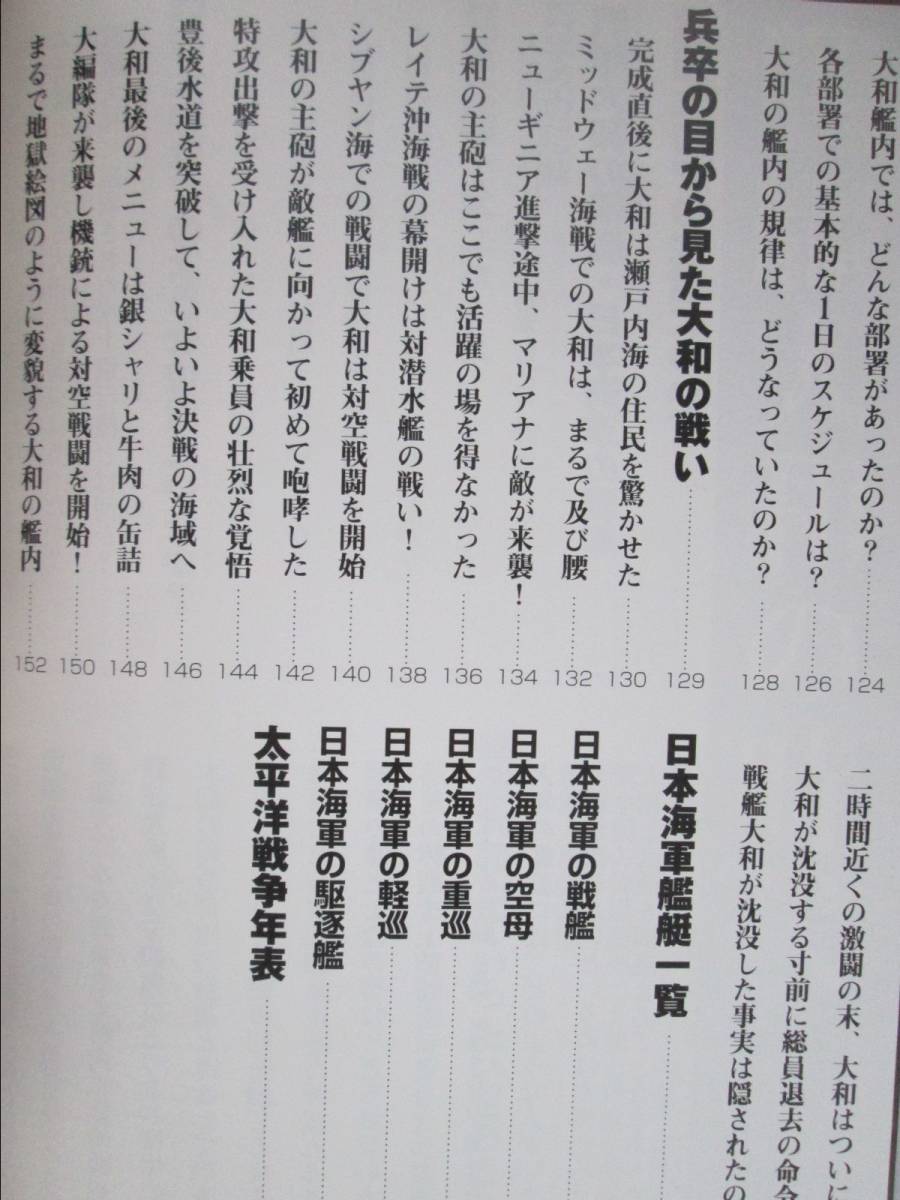 大和艦内では、どんな部署があったのか?…………124
各部署での基本的な1日のスケジュールは?…………126
大和の艦内の規律は、どうなっていたのか?…………128
兵卒の目から見た大和の戦い…………129
完成直後に大和は瀬戸内海の住民を驚かせた…………130
ミッドウェー海戦での大和は、まるで及び腰…………132
ニューギニア進撃途中、マリアナに敵が来襲!…………134
大和の主砲はここでも活躍の場を得なかった…………136
レイテ沖海戦の幕開けは対潜水艦の戦い!…………138
シブヤン海での戦闘で大和は対空戦闘を開始…………140
大和の主砲が敵艦に向かって初めて咆哮した…………142
特攻出撃を受け入れた大和乗員の壮烈な覚悟…………144
豊後水道を突破して、いよいよ決戦の海域へ…………146
大和最後のメニューは銀シャリと牛肉の缶詰…………148
大編隊が来襲し機銃による対空戦闘を開始!…………150
まるで地獄絵図のように変貌する大和の艦内…………152
二時間近くの激闘の末、大和はついに
大和が沈没する寸前に総員退去の命令
戦艦大和が沈没した事実は隠されたの
日本海軍艦艇一覧…………
日本海軍の戦艦…………
日本海軍の空母…………
日本海軍の重巡…………
日本海軍の軽巡…………
日本海軍の駆逐艦…………
太平洋戦争年表…………